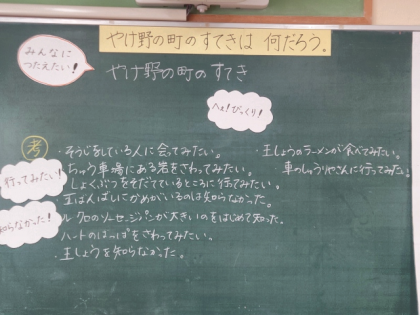 やけ野の町のすてきは 何だろう。
みんなにつたえたい!
やけ野の町のすてき
へぇ!びっくり!
考
・そうじをしている人に会ってみたい。
・ちゅう車場にある岩をさわってみたい。
・しょくぶつをそだてているところに行てみたい。
・王ばんばしにかめがいるのは知らなかった。
・ルクロのソーセージパンが大きいのをはじめて知った。
・ハートのはっぱをさわってみたい。
・王しょうを知らなかった。
・王しょうのラーメンが食べてみたい。
・車のしゅうりやさんに行ってみたい
行ってみたい!
知らなかった!